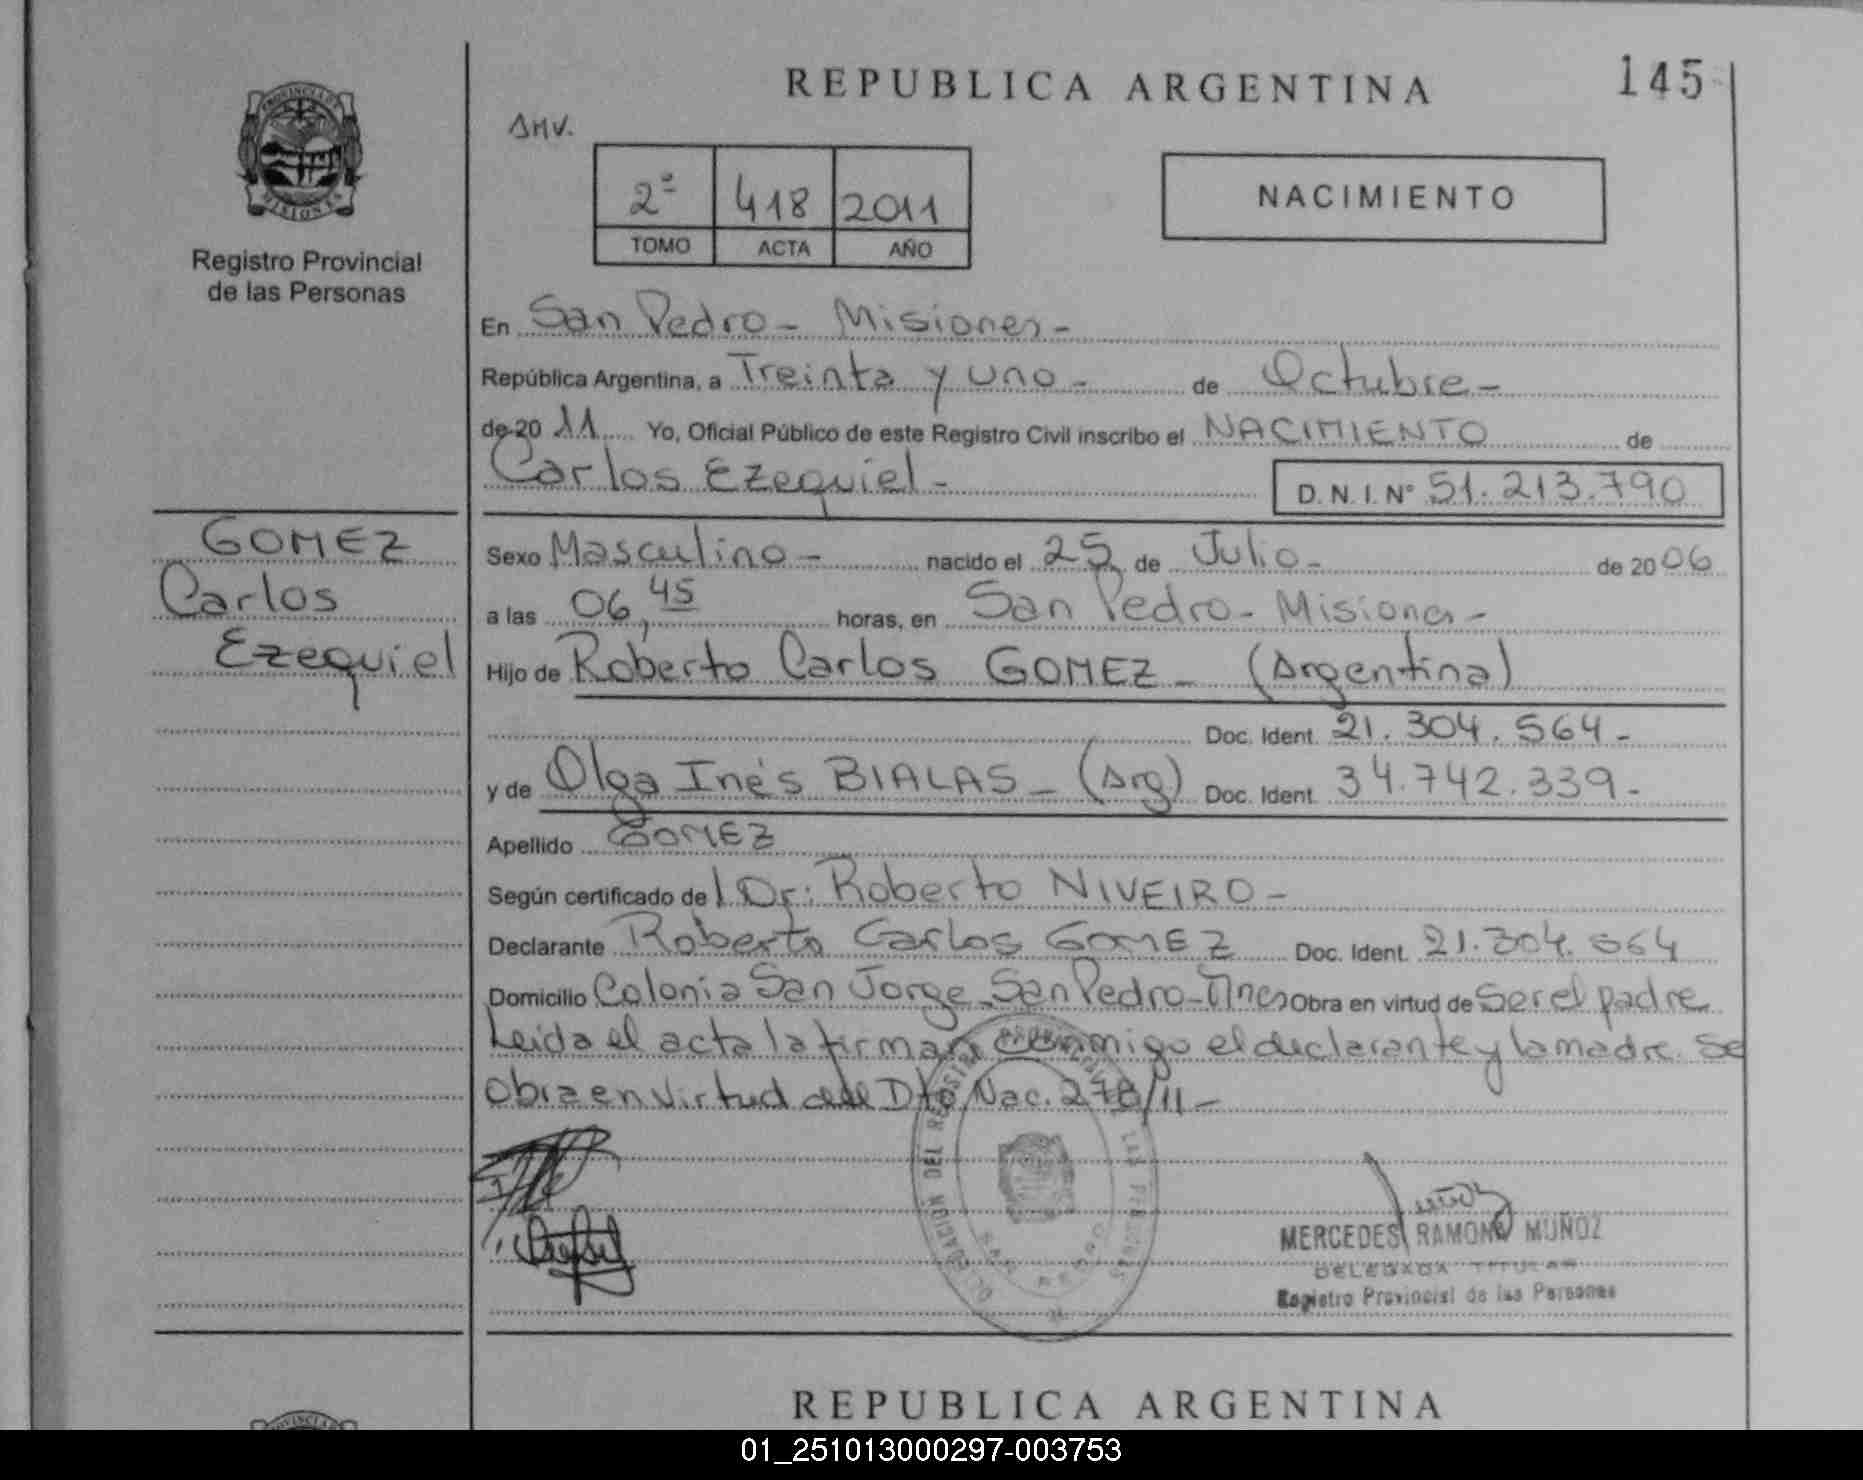 REPUBLICA ARGENTINA
145
AMV.
PROVINCIA DE MISIONES
Registro Provincial
de las Personas
2º 418 2011
TOMO ACTA AÑO
NACIMIENTO
En San Pedro - Misiones -
República Argentina, a Treinta y uno - de Octubre -
de 20 11 Yo, Oficial Público de este Registro Civil inscribo el NACIMIENTO de
Carlos Ezequiel - D.N.I.Nº 51.213.790
GOMEZ
Carlos
Ezequiel
Sexo Masculino - nacido el 25 de Julio - de 2006
a las 06,45 horas, en San Pedro - Misiones -
Hijo de Roberto Carlos GOMEZ - (Argentina)
Doc. Ident. 21.304.564 -
y de Olga Inés BIALAS - (Arg) Doc. Ident. 34.742.339 -
Apellido GOMEZ
Según certificado del Dr: Roberto NIVEIRO -
Declarante Roberto Carlos GOMEZ Doc. Ident. 21.304.564
Domicilio Colonia San Jorge - San Pedro - Mnes Obra en virtud de ser el padre
Leida el acta la firman conmigo el declarante y la madre. Se
obra en virtud del Dto. Nac. 278/11 -
DELEGACION DEL REGISTRO PROVINCIAL DE LAS PERSONAS
SAN PEDRO
MERCEDES RAMONA MUÑOZ
DELEGADA TITULAR
Registro Provincial de las Personas
REPUBLICA ARGENTINA
PROVINCIA
01_251013000297-003753